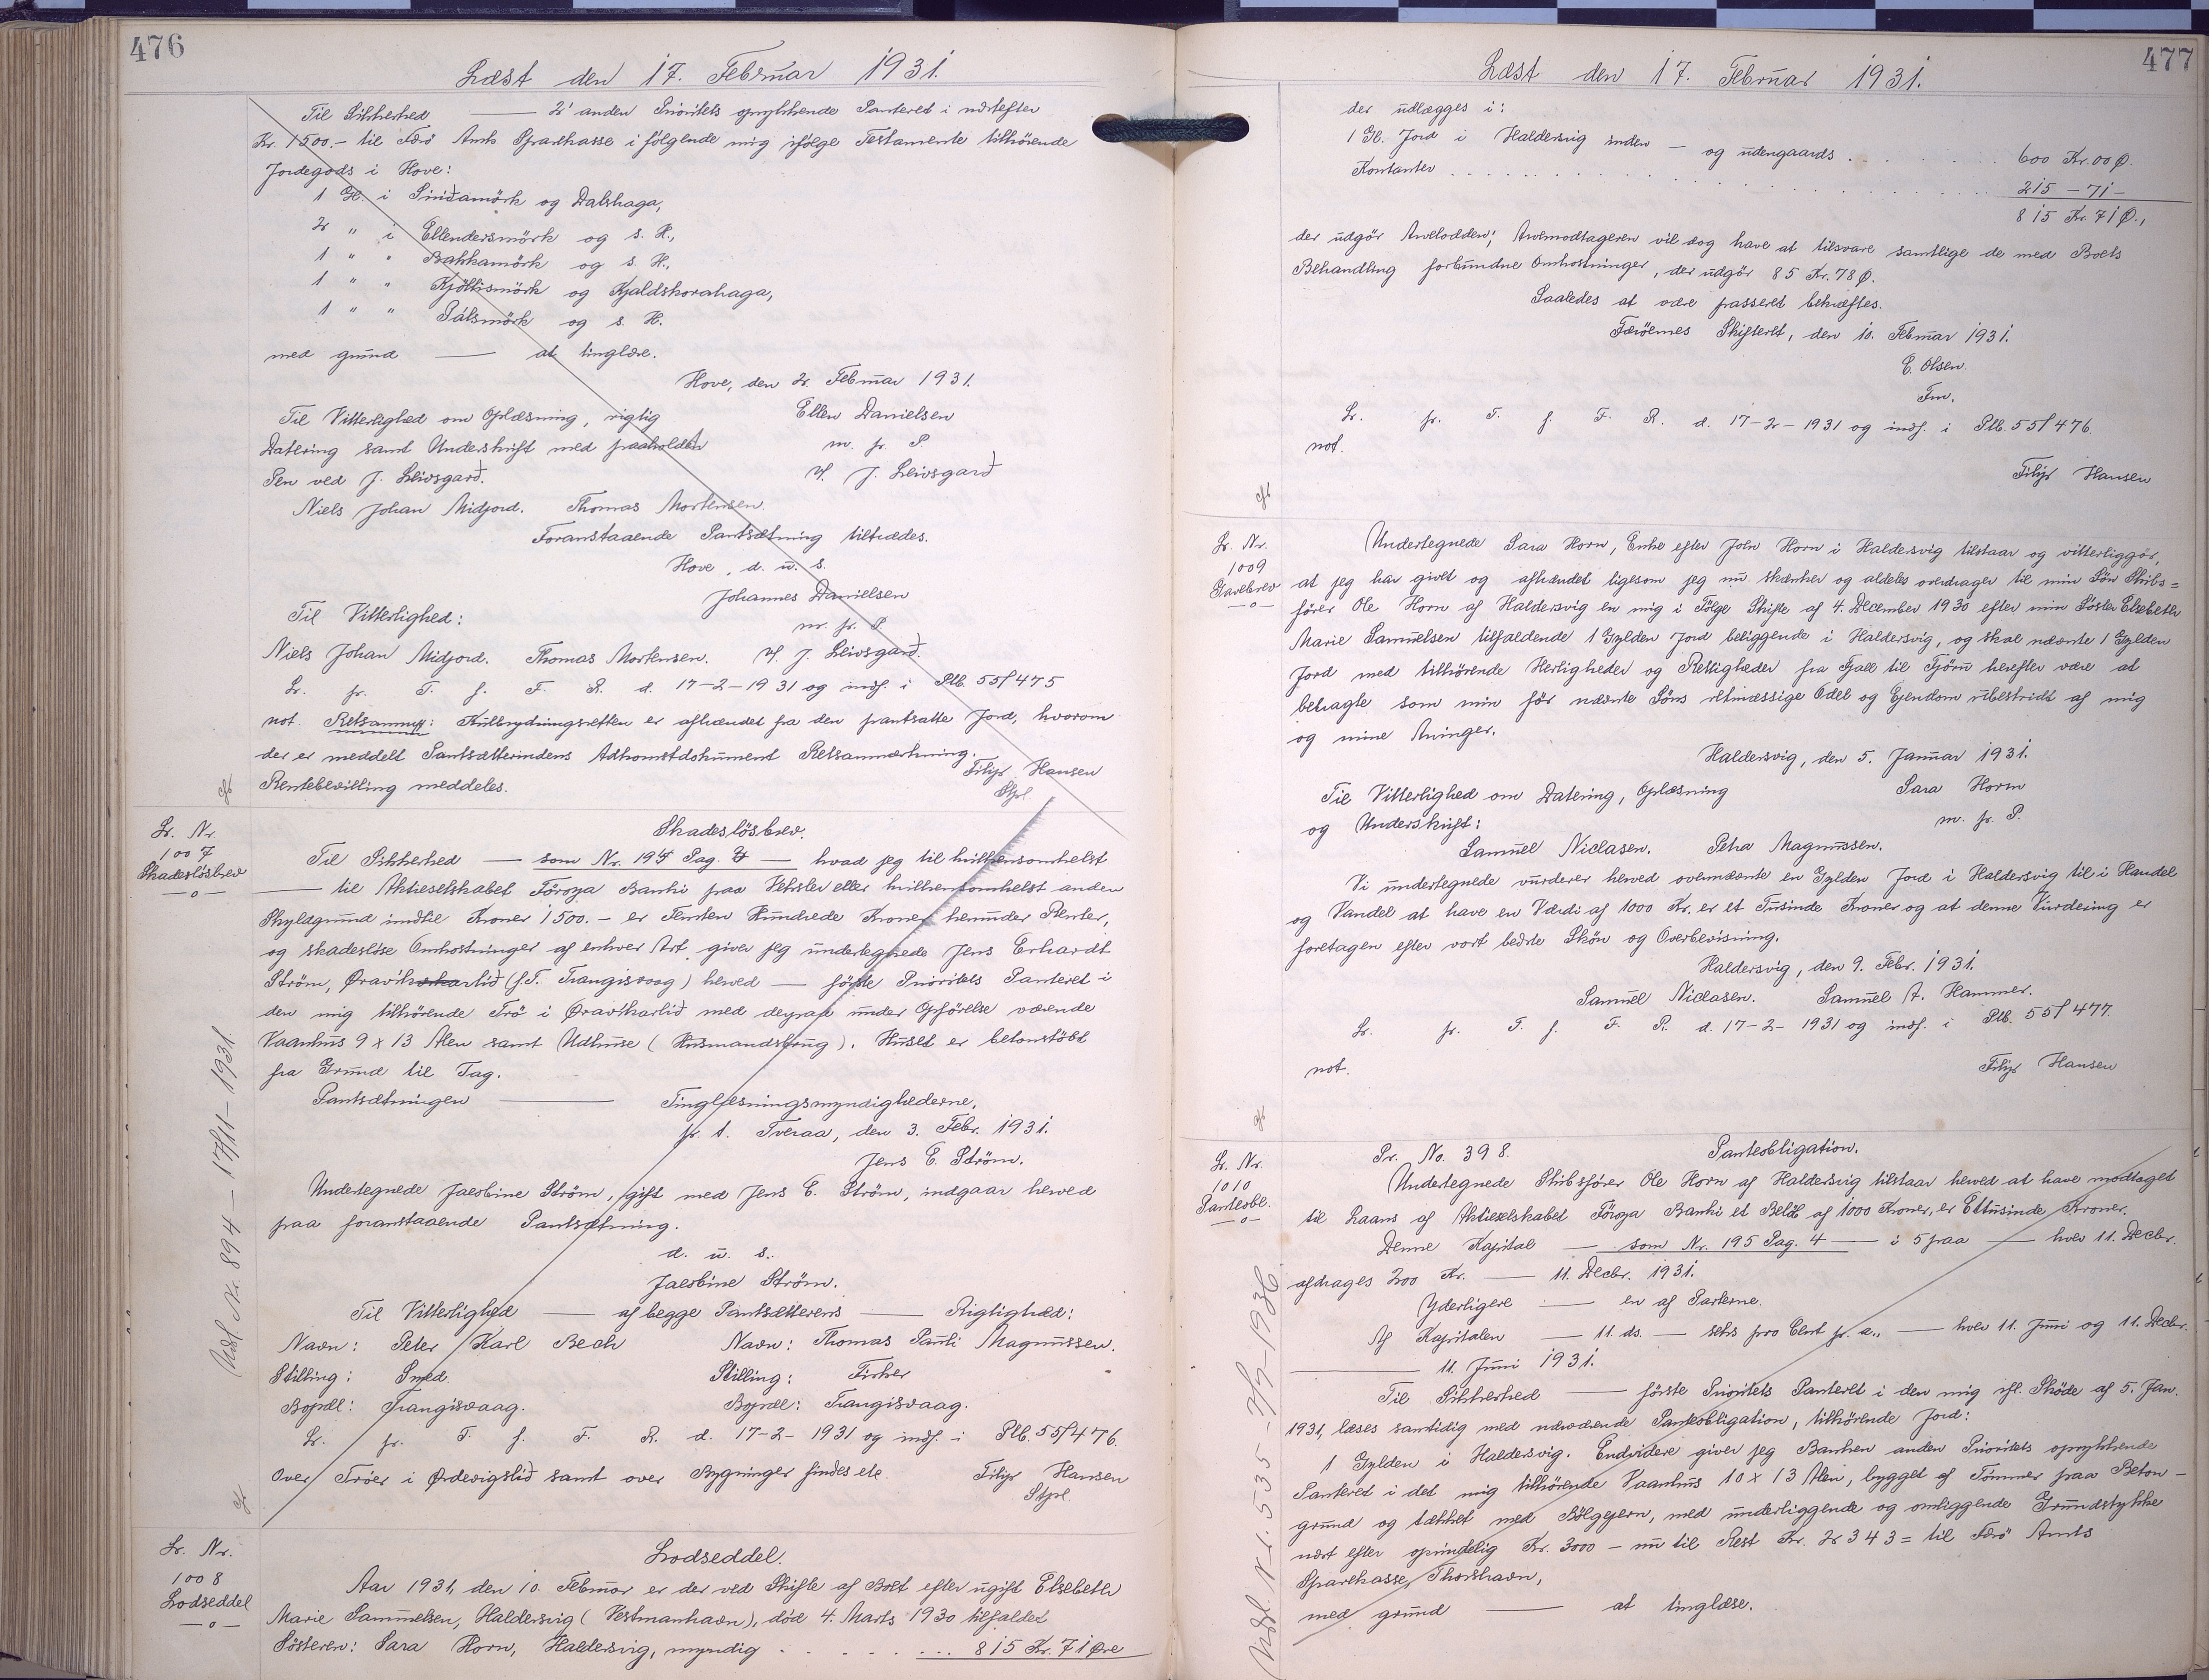 476
Læst den 17. Februar 1931.
Til Sikkerhed —— 2' anden Prioritets oprykkende Panteret i næstefter
Kr. 1500.- til Færø Amts Sparekasse i følgende mig ifølge Testamente tilhørende
Jordegods i Hove:
1 Gl. i og Dalshaga,
2 " i Ellendersmørk og s. H.,
1 " " Bakkamørk og s. H.,
1 " " og
1 " " Pálsmørk og s. H.
med grund —— at tinglæse.
Hove, den 2. Februar 1931.
Til Vitterlighed om Oplæsning, rigtig
Ellen Danielsen
Datering samt Underskrift med paaholden
m. f. P.
Pen ved J. Leivsgarð.
J. Leivsgarð
Niels Johan Midjord. Thomas Mortensen.
Foranstaaende Pantsætning tiltrædes.
Hove, d. u. s.
Johannes Danielsen
Til Vitterlighed:
m. f. P
Niels Johan Midjord. Thomas Mortensen. J. Leivsgarð.
Lr. fr. T. f. F. R. d. 17-2-1931 og indf. i Ptb. 55/475
not. Retsanm: er afhændet fra den pantsatte Jord, hvorom
der er meddelt Pantsætterindens Adkomstdokument Retsanmærkning.
Filip Hansen
Rentebevilling meddeles.
Stpl.
Lr. Nr.
1007
Skadesløsbrev
—o—
Skadesløsbrev.
Til Sikkerhed —— som Nr. 194 Pag. —— hvad jeg til hvilkensomhelst
—— til Aktieselskabet Föroya Banki paa Veksler eller hvilkensomhelst anden
Skyldgrund indtil Kroner 1500.- er Femten Hundrede Kroner herunder Renter,
og skadesløse Omkostninger af enhver Art, giver jeg undertegnede Jens Erhardt
Strøm, (p.T. Trangisvaag) herved —— første Prioritets Panteret i
den mig tilhørende Trø i med derpaa under Opførelse værende
Vaanhus 9 x 13 Alen samt Udhuse (Husmandsbrug). Huset er betonstøbt
fra Grund til Tag.
Pantsætningen —— Tinglæsningsmyndighederne,
p. t. Tveraa, den 3. Febr. 1931.
Jens E. Strøm.
Undertegnede Jacobine Strøm, gift med Jens E. Strøm, indgaar herved
paa foranstaaende Pantsætning.
d. u. s.
Jacobine Strøm.
Til Vitterlighed —— af begge Pantsætterens —— Rigtighed:
Navn: Peter Karl Bech Navn: Thomas Pauli Magnussen.
Stilling: Smed. Stilling: Fisker
Bopæl: Trangisvaag. Bopæl: Trangisvaag.
Lr. fr. T. f. F. R. d. 17-2-1931 og indf. i Ptb. 55/476.
Over Trøer i Ørdevigslið samt over Bygninger findes ete. Filip Hansen
Stpl.
Udsl. Nr. 894 — 17/11-1931
Lr. Nr.
1008
Lodseddel
—o—
Lodseddel.
Aar 1931, den 10. Februar er der ved Skifte af Boet efter ugift Elsebeth
Marie Sammelsen, Haldersvig (Vestmanhavn), død 4. Marts 1930 tilfaldet
Søsteren: Sara Horn, Haldersvig, myndig . . . . . . . . . 815 Kr. 71 Øre
477
Læst den 17. Februar 1931.
der udlægges i:
1 Gl. Jord i Haldersvig inden — og udengaards . . . . . . . 600 Kr. 00 Ø.
Kontanter . . . . . . . . . . . . . . . 215 - 71 -
815 Kr. 71 Ø.,
der udgør Arvelodden; Arvemodtageren vil dog have at tilsvare samtlige de med Boets
Behandling forbundne Omkostninger, der udgør 85 Kr. 78 Ø.
Saaledes at være passeret bekræftes.
Færøernes Skifteret, den 10. Februar 1931.
E. Olsen.
Fm.
Lr. fr. T. f. F. R. d. 17-2-1931 og indf. i Ptb. 55/476.
not.
Filip Hansen
Lr. Nr.
1009
Gavebrev
—o—
Undertegnede Sara Horn, Enke efter John Horn i Haldersvig tilstaar og vitterliggør,
at jeg har givet og afhændet ligesom jeg nu skænker og aldeles overdrager til min Søn Skibs=
fører Ole Horn af Haldersvig en mig i Følge Skifte af 4. December 1930 efter min Søster Elsebeth
Marie Samuelsen tilfaldende 1 Gylden Jord beliggende i Haldersvig, og skal nævnte 1 Gylden
Jord med tilhørende Herligheder og Rettigheder fra Fjall til Fjøru herefter være at
betragte som min før nævnte Søns retmæssige Odel og Ejendom ubestridt af mig
og mine Arvinger.
Haldersvig, den 5. Januar 1931.
Til Vitterlighed om Datering, Oplæsning
Sara Horn
og Underskrift:
m. f. P.
Samuel Niclasen. Petra Magnussen.
Vi undertegnede vurderer herved ovennævnte en Gylden Jord i Haldersvig til i Handel
og Vandel at have en Værdi af 1000 Kr. er et Tusinde Kroner og at denne Vurdering er
foretagen efter vort bedste Skøn og Overbevisning.
Haldersvig, den 9. Febr. 1931.
Samuel Niclasen. Samuel A. Hammer.
Lr. fr. T. f. F. R. d. 17-2-1931 og indf. i Ptb. 55/477.
not.
Filip Hansen
Lr. Nr.
1010
Panteobl.
—o—
Pr. No. 398. Panteobligation.
Undertegnede Skibsfører Ole Horn af Haldersvig tilstaar herved at have modtaget
til Laans af Aktieselskabet Föroya Banki et Beløb af 1000 Kroner, er Ettusinde Kroner.
Denne Kapital —— som Nr. 195 Pag. 4 —— i 5 paa —— hver 11. Decbr.
afdrages 200 Kr. —— 11. Decbr. 1931.
Yderligere —— en af Parterne.
Af Kapitalen —— 11. ds. —— seks pro Cent p. a., —— hver 11. Juni og 11. Decbr.
—— 11. Juni 1931.
Til Sikkerhed —— første Prioritets Panteret i den mig ifl. Skøde af 5. Jan.
1931, læses samtidig med nærværende Panteobligation, tilhørende Jord:
1 Gylden i Haldersvig. Endvidere giver jeg Banken anden Prioritets oprykkende
Panteret i det mig tilhørende Vaanhus 10 x 13 Alen, bygget af Tømmer paa Beton-
grund og tækket med Bølgejern, med underliggende og omliggende Grundstykke
næst efter oprindelig Kr. 3000 - nu til Rest Kr. 2343= til Færø Amts
Sparekasse, Thorshavn,
med grund —— at tinglæse.